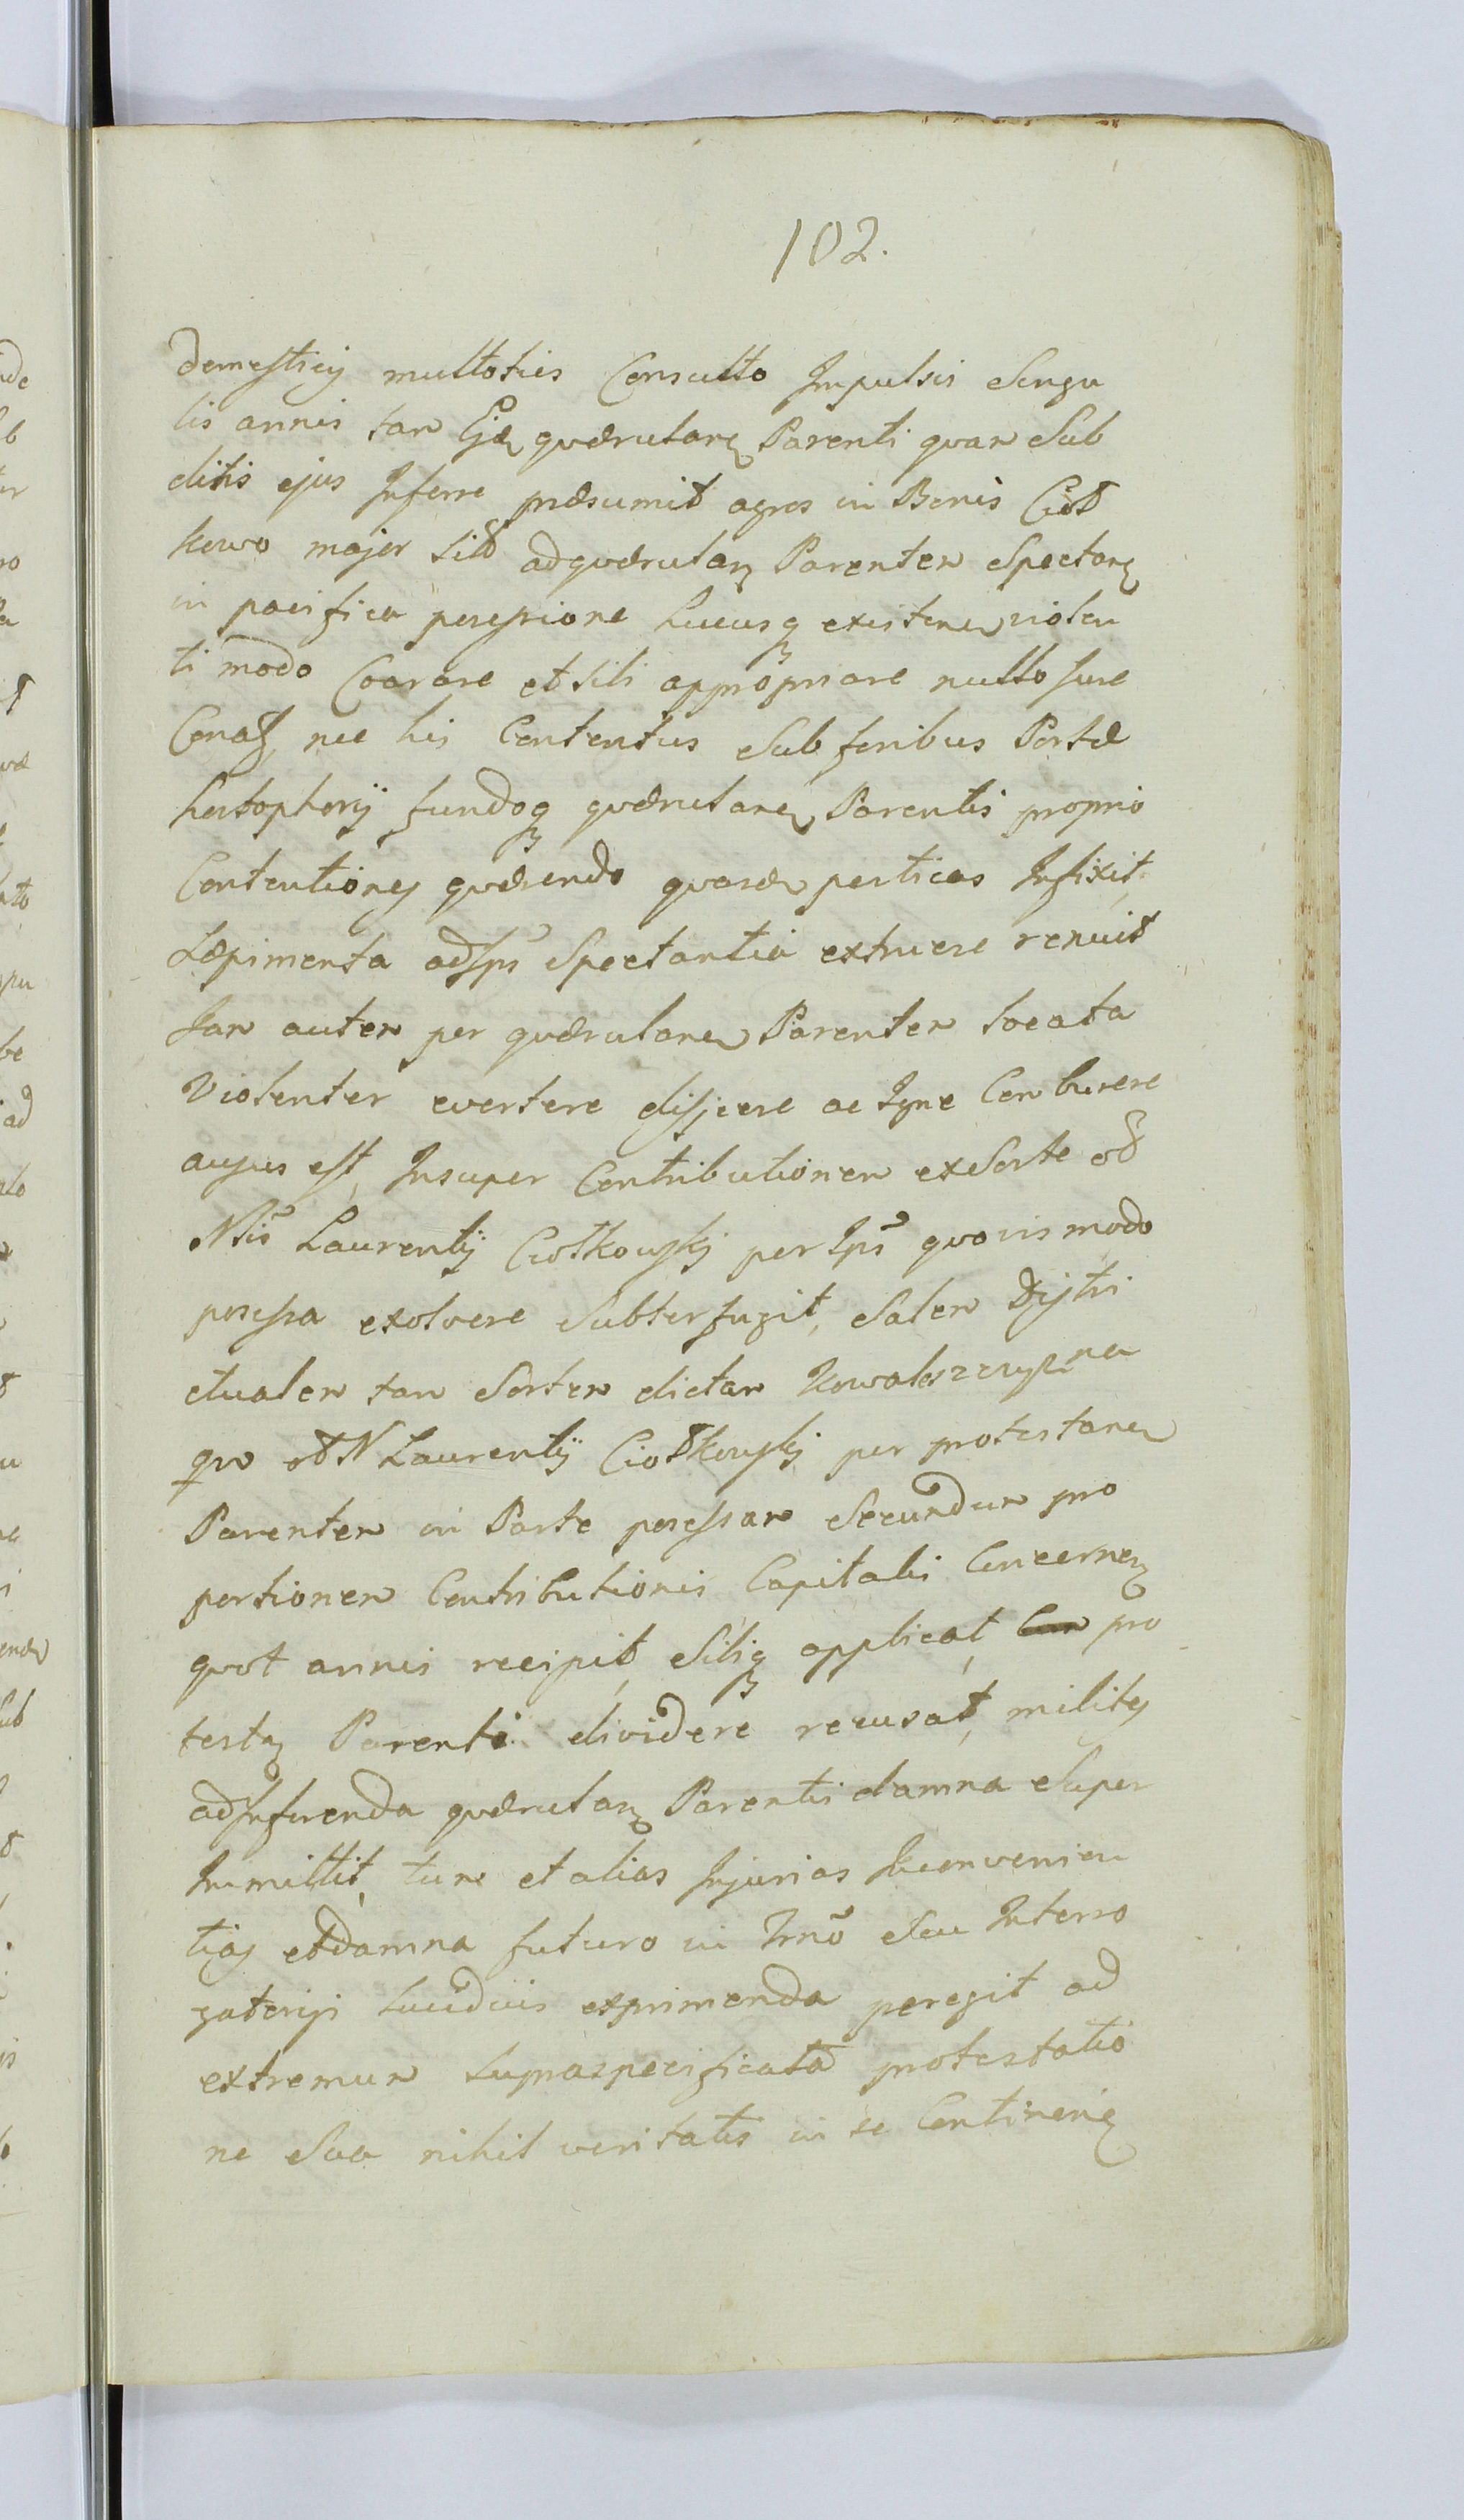 102.
domesticis multoties Consulto Impulsis Singu
lis annis tam Ejd quærulanṭ Parenti quam Sub
ditis ejus Inferre præsumit agros in Bonis Ciół
kowo major sitis ad quærulan Parentem Spectan
in pacifica possessione hucusq existen violen
ti modo Coarare et sibi appropriare nullo Jure
Conat, nec his Contentus Sub foribus Portæ
fundoq quærulanem Parentis proprio
Contentiones quærendo quasdam perticas Infixit,
Sæpimenta ad Ips Spectantia extruere renuit
Jam autem per quærulanem Parentem locata
Violenter evertere disjicere ac Igne Comburere
ausus est, Insuper Contributionem ex Sorte olim
Nlis Laurentij Ciołkowskj per Ips quovis modo
possessa exolvere Subterfugit, Salem Distri
ctualem tam Sortem dictam Kowalszczyzna
quo ol N Laurentij Ciołkowskj per protestanem
Parentem in Parte possessam Secundum pro
portionem Contributionis Capitalis Concernen
quot annis recipit, Sibiq applicat, pro
testan Parenti dividere recusat, milites
ad Inferenda quærulan Parentis damna Super
Immittit, tum et alias Injurias Inconvenien
tias et damna futuro in Trno Seu Interro
gatorijs lucidius exprimenda peregit ad
extremum supraspecificata protestatio
ne Sua nihil veritatis in se Continen